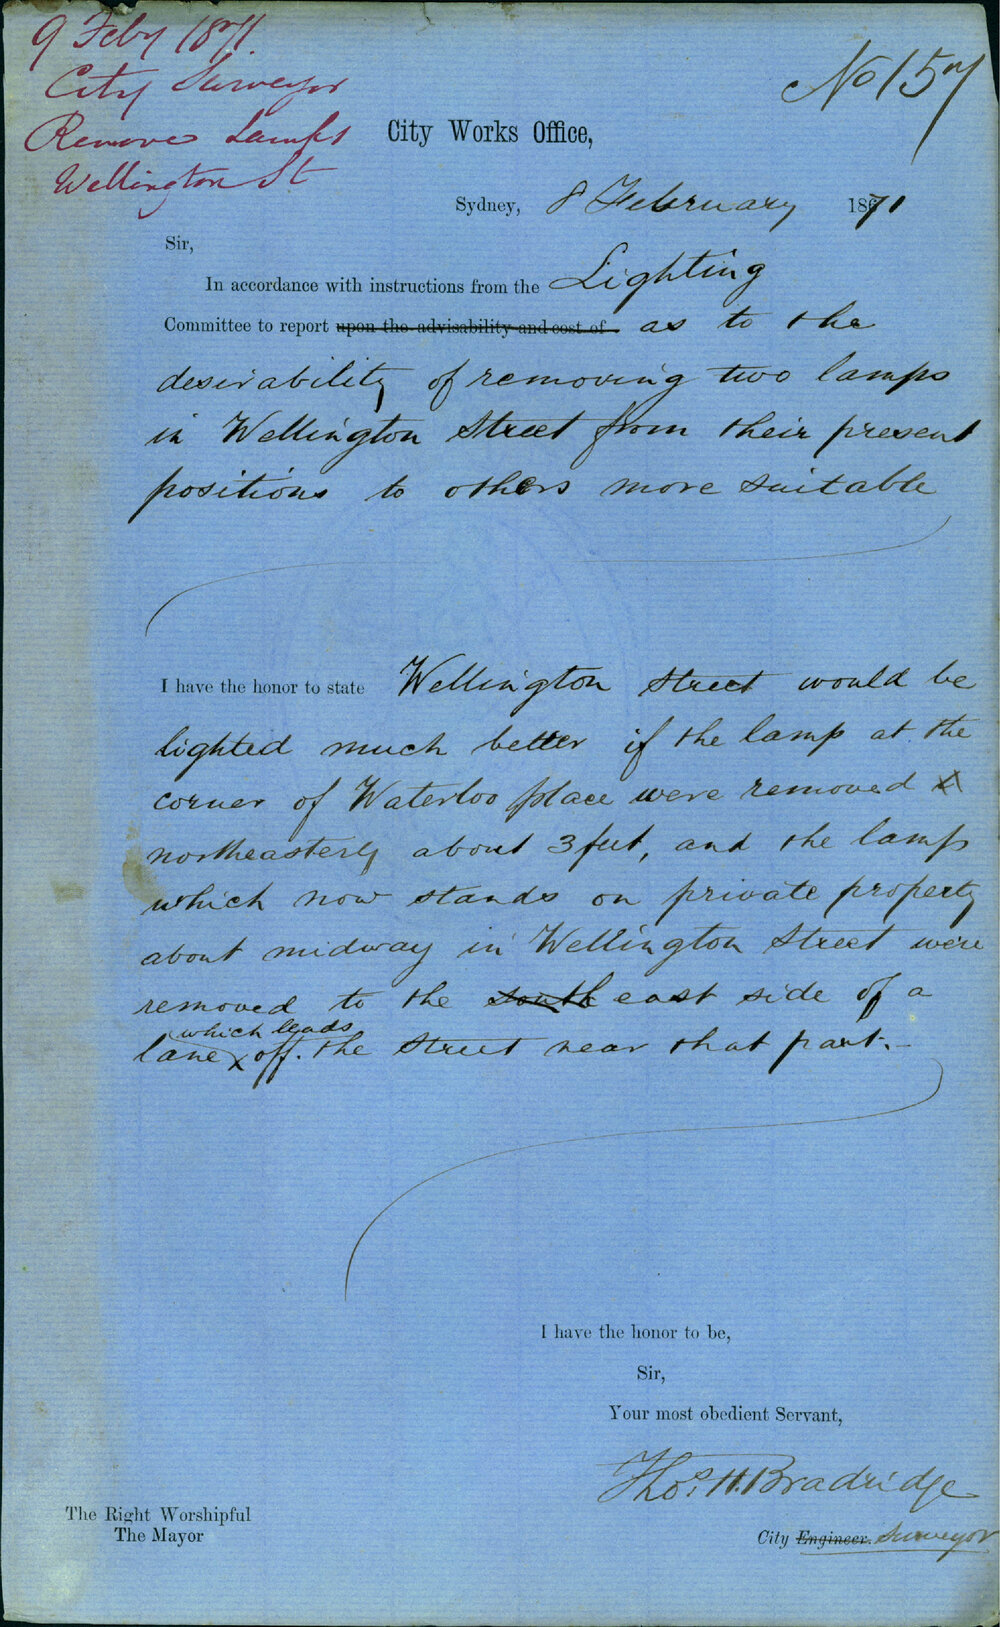 9 Feby 1871.
City Surveyor
Remove Lamps
Wellington St
No 157
City Works Office,
Sydney, 8 February 1871
Sir,
In accordance with instructions from the Lighting
Committee to report upon the advisability and cost of as to the
desirability of removing two lamps
in Wellington Street from their present
positions to others more suitable
I have the honor to state Wellington Street would be
lighted much better if the lamp at the
corner of Waterloo place were removed
northeasterly about 3 feet, and the lamp
which now stands on private property
about midway in Wellington Street were
removed to the south east side of a
which leads
lane off. the Street near that part.
I have the honor to be,
Sir,
Your most obedient Servant,
Thos. H. Bradridge
City Engineer. Surveyor
The Right Worshipful
The Mayor